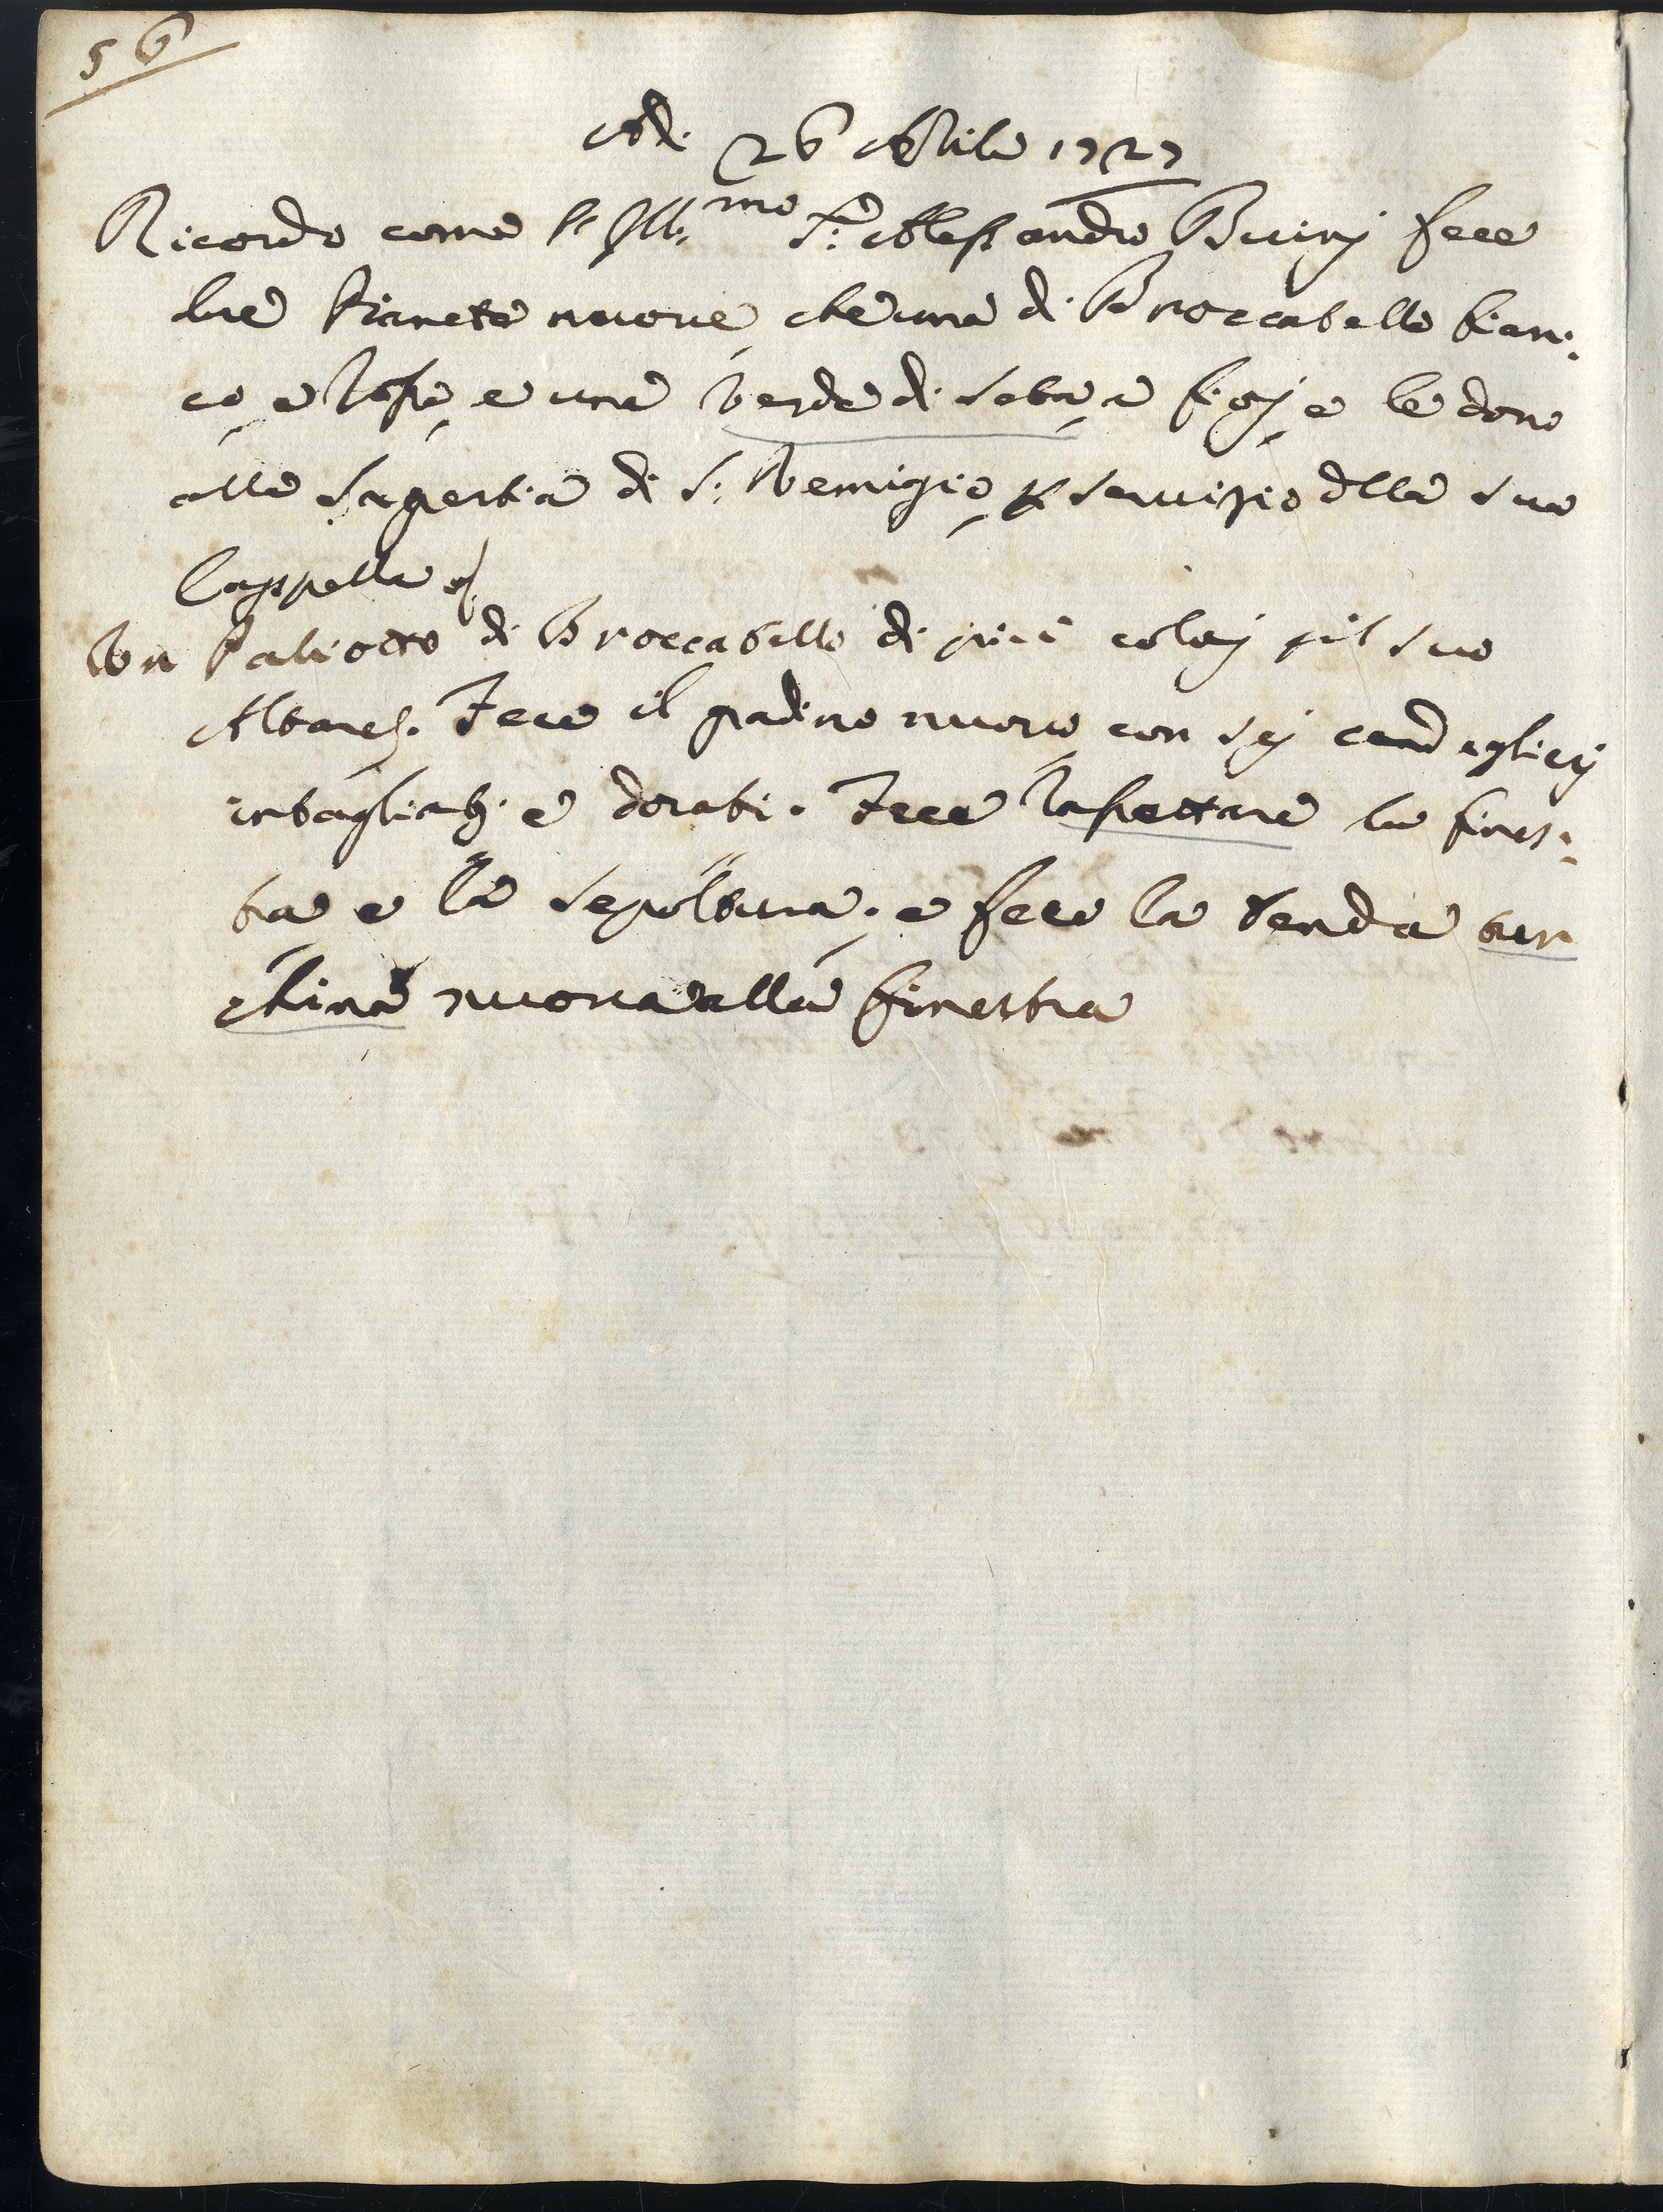 56
Adi. 26 Aprile 1727
Ricordo come l'Ill:mo S:r Alessandro Buinj fece
tre Pianete nuove, che una di Broccatello bian:
co, e rosso, e una verde di seta, a fiorj, e le dono
alla Sagrestia di S: Remigio, p servizio dlla sua
Cappella
Un Paliotto di Broccatello di più colorj p il suo
Altare. Fece il gradino nuovo, con sej candeglierj
intagliati e dorati. Fece rassettare la fines:
tra e la sepoltura. e fece la tenda tur
china nuova alla finestra